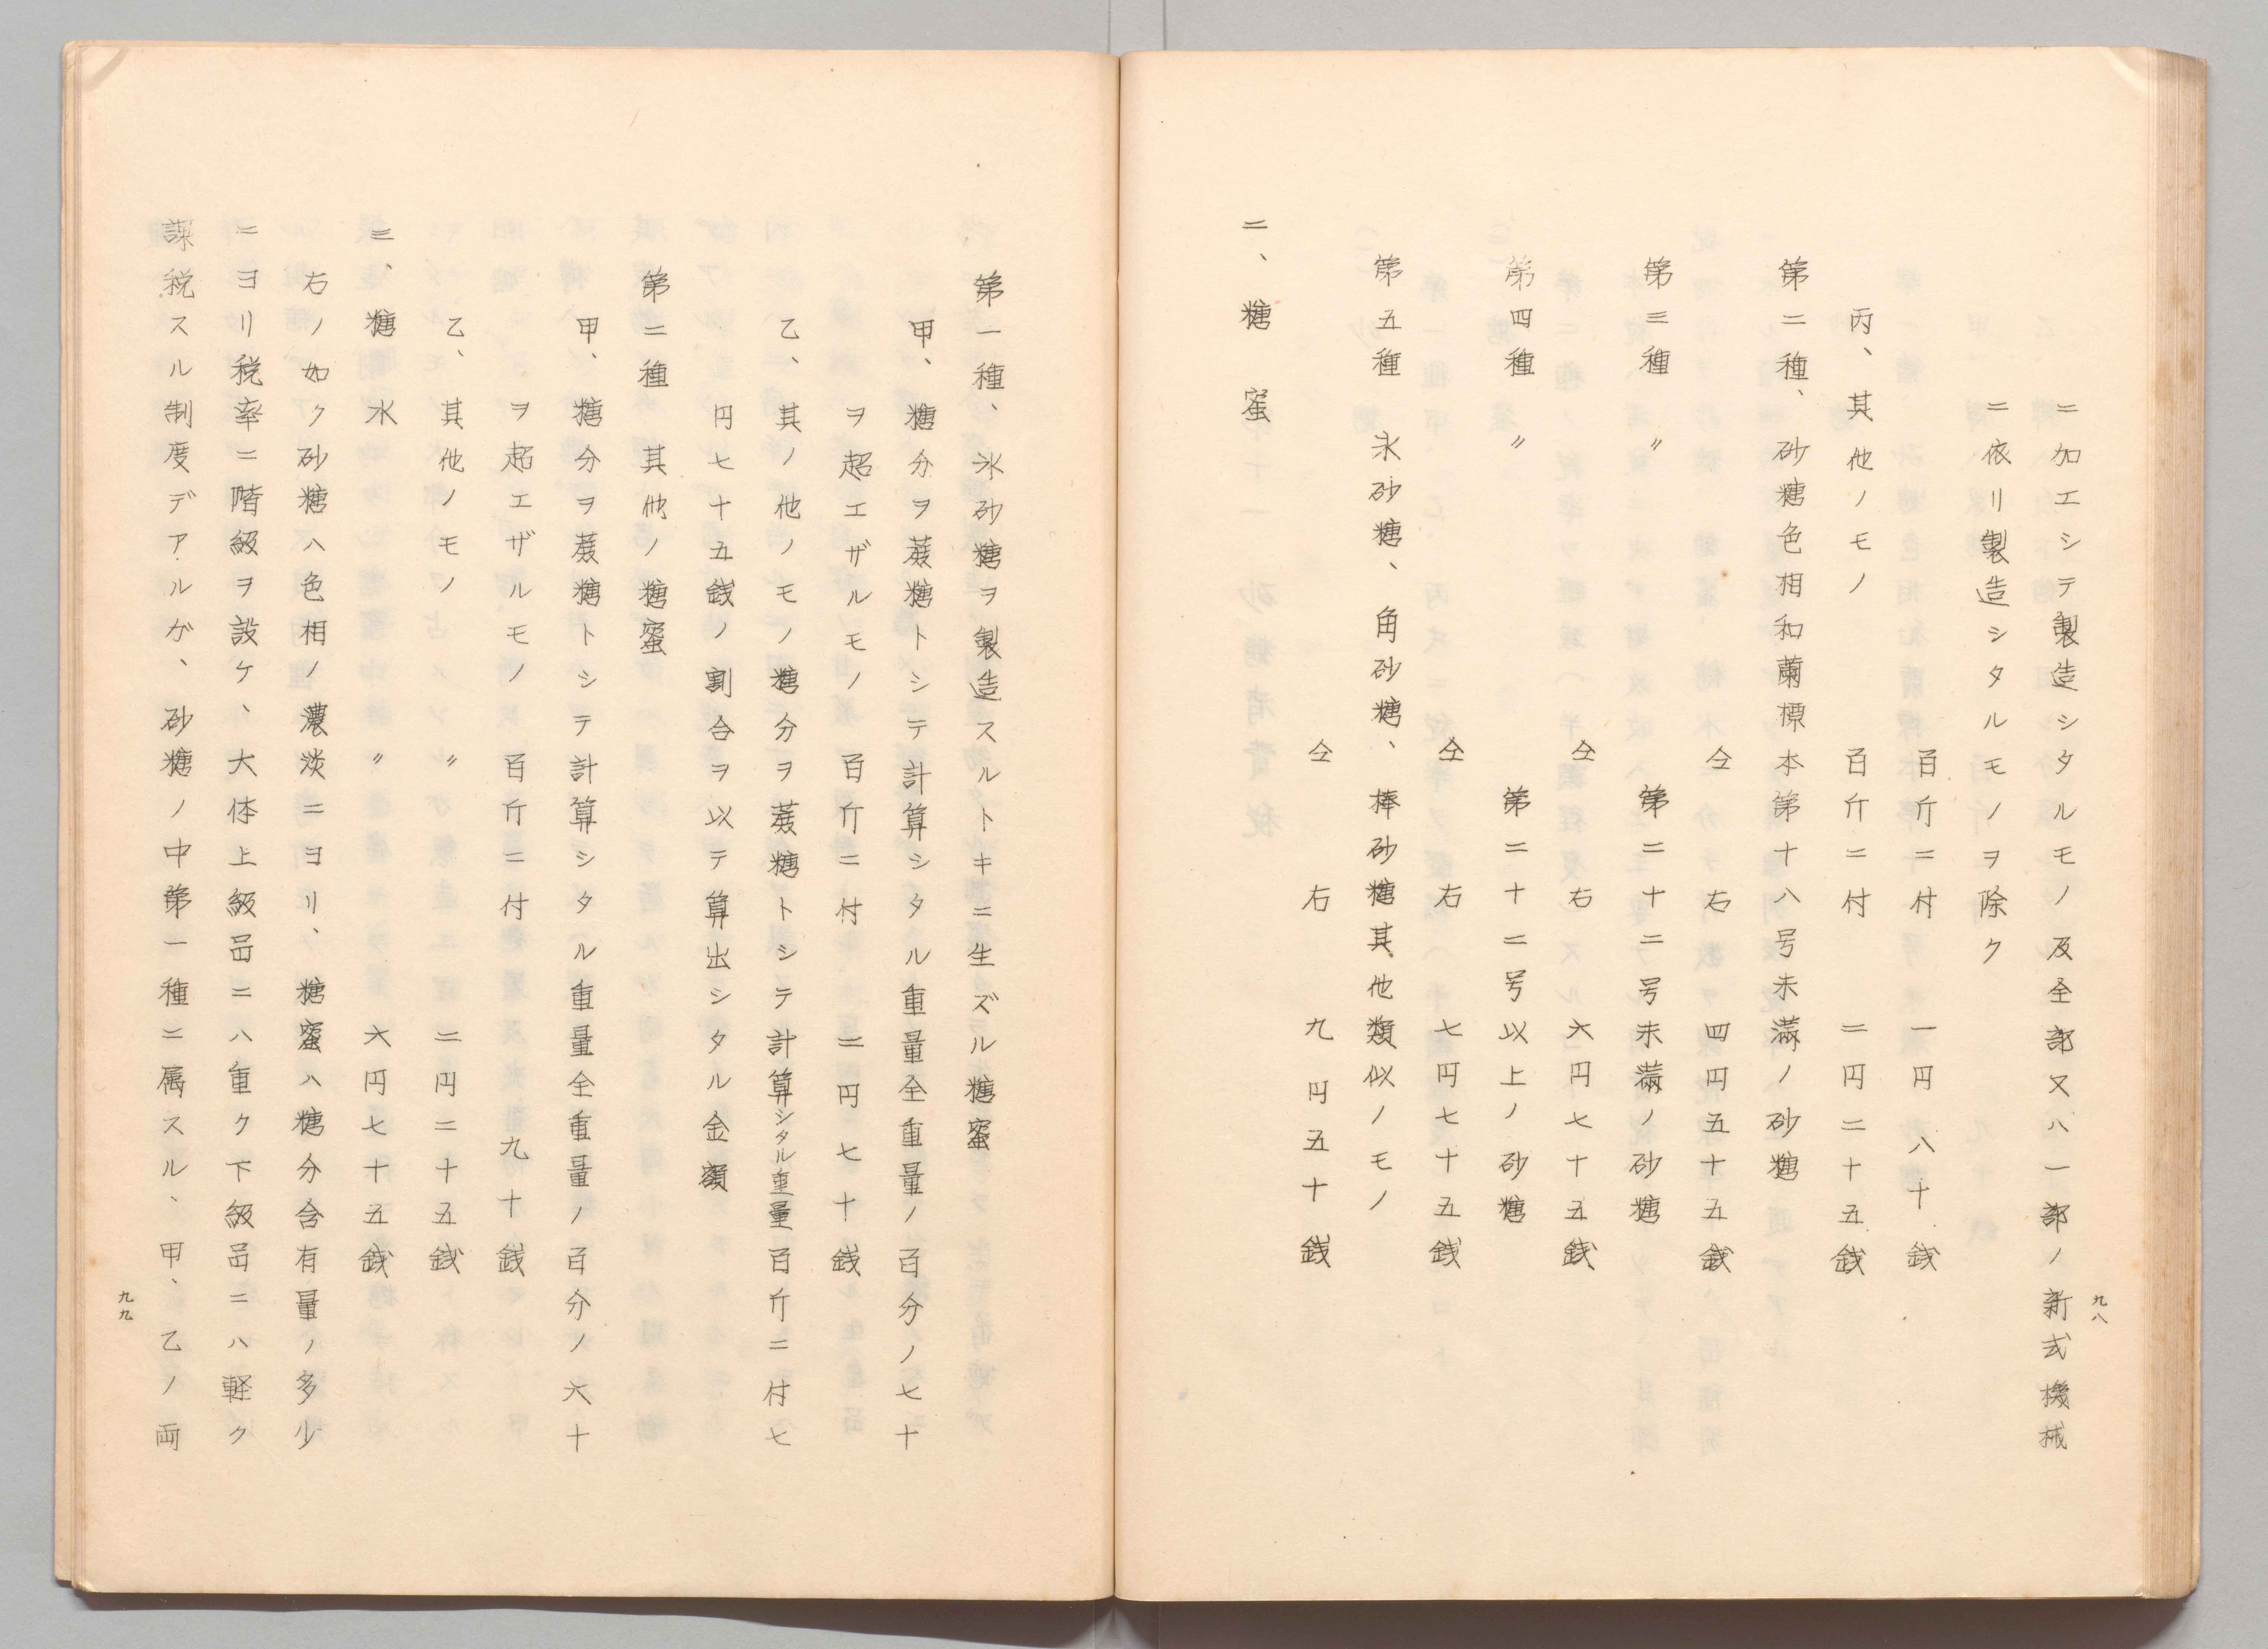 九八
ニ加工シテ製造シタルモノ及全部又ハ一部ノ新式機械
ニ依リ製造シタルモノヲ除ク
百斤ニ付 一円八十銭
丙、其他ノモノ 百斤ニ付 二円二十五銭
第二種、砂糖色相和蘭標本第十八号未満ノ砂糖
仝右 四円五十五銭
第三種 〃 第二十二号未満ノ砂糖
仝右 六円七十五銭
第四種 〃 第二十二号以上ノ砂糖
仝右 七円七十五銭
第五種 氷砂糖、角砂糖、棒砂糖其他類似ノモノ
仝右 九円五十銭
二、糖蜜
第一種、氷砂糖ヲ製造スルトキニ生ズル糖蜜
甲、糖分ヲ蔗糖トシテ計算シタル重量全重量ノ百分ノ七十
ヲ超エザルモノ 百斤ニ付 二円七十銭
乙、其ノ他ノモノ糖分ヲ蔗糖トシテ計算シタル重量百斤ニ付七
円七十五銭ノ割合ヲ以テ算出シタル金額
第二種 其他ノ糖蜜
甲、糖分ヲ蔗糖トシテ計算シタル重量全重量ノ百分ノ六十
ヲ超エザルモノ 百斤ニ付 九十銭
乙、其他ノモノ 〃 二円二十五銭
三、糖水 〃 六円七十五銭
右ノ如ク砂糖ハ色相ノ濃淡ニヨリ、糖蜜ハ糖分含有量ノ多少
ニヨリ税率ニ階級ヲ設ケ、大体上級品ニハ重ク下級品ニハ軽ク
課税スル制度デアルガ、砂糖ノ中第一種ニ属スル、甲、乙ノ両
九九